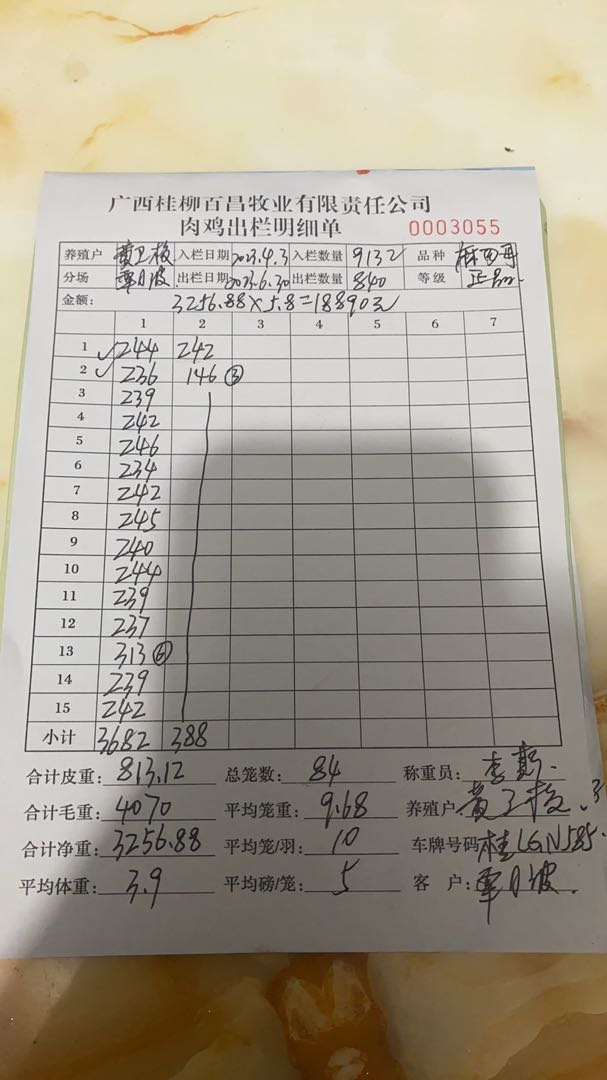 广西桂柳百昌牧业有限责任公司
肉鸡出栏明细单 0003055
养殖户 黄卫梅 入栏日期 2023.4.3 入栏数量 9132 品种
分场 覃月波 出栏日期 2023.6.30 出栏数量 840 等级 正品
金额: 3256.88×5.8=18890元
1 2 3 4 5 6 7
1 244 242
2 236 146 ③
3 239
4 242
5 246
6 234
7 242
8 245
9 240
10 244
11 239
12 237
13 313 ⑥
14 239
15 242
小计 3682 388
合计皮重: 813.12 总笼数: 84 称重员: 李
合计毛重: 4070 平均笼重: 9.68 养殖户
合计净重: 3256.88 平均笼/羽: 10 车牌号码 桂LGN585
平均体重: 3.9 平均磅/笼: 5 客户: 覃月波